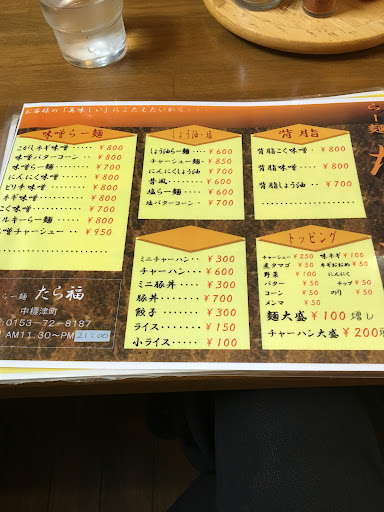 お客様の「美味しい」にこたえたいから・・・・
味噌らー麺
こがしネギ味噌・・・ ¥800
味噌バターコーン・・ ¥800
味噌・・・・・・・・ ¥700
にんにく味噌・・・・ ¥800
ピリ辛味噌・・・・・ ¥800
ネギ味噌・・・・・・ ¥800
く味噌・・・・・・ ¥700
ルキーらー麺・・・・ ¥800
噌チャーシュー・・・ ¥950
しょう油・塩
しょう油らー麺・・・・ ¥600
チャーシュー麺・・・・ ¥850
にんにくしょう油・・・ ¥700
昔風・・・・・・・・ ¥600
塩らー麺・・・・・・ ¥600
塩バターコーン・・・ ¥700
背脂
背脂こく味噌・・ ¥800
背脂味噌・・・・ ¥800
背脂しょう油・・ ¥700
らー麺
た
ミニチャーハン・・・ ¥300
チャーハン・・・・・ ¥600
ミニ豚丼・・・・・・ ¥300
豚丼・・・・・・・・ ¥700
餃子・・・・・・・・ ¥300
ライス・・・・・・・ ¥150
小ライス・・・・・・ ¥100
トッピング
チャーシュー ¥250 味ネギ ¥100
煮タマゴ ¥50 ネギおおめ ¥50
野菜 ¥100 にんにく
バター ¥50 ナッツ ¥50
コーン ¥50 のり ¥50
メンマ ¥50
麺大盛 ¥100増し
チャーハン大盛 ¥200
らー麺 たら福
中標津町
0153-72-8187
AM11:30~PM21:00